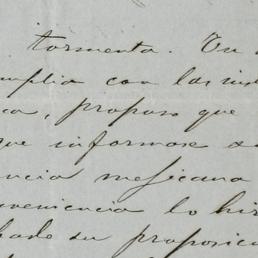 tormenta. En
mplia con las ins
ca, propuso que
que informase so
encia mejicana
veniencia lo hi
bado su proposic